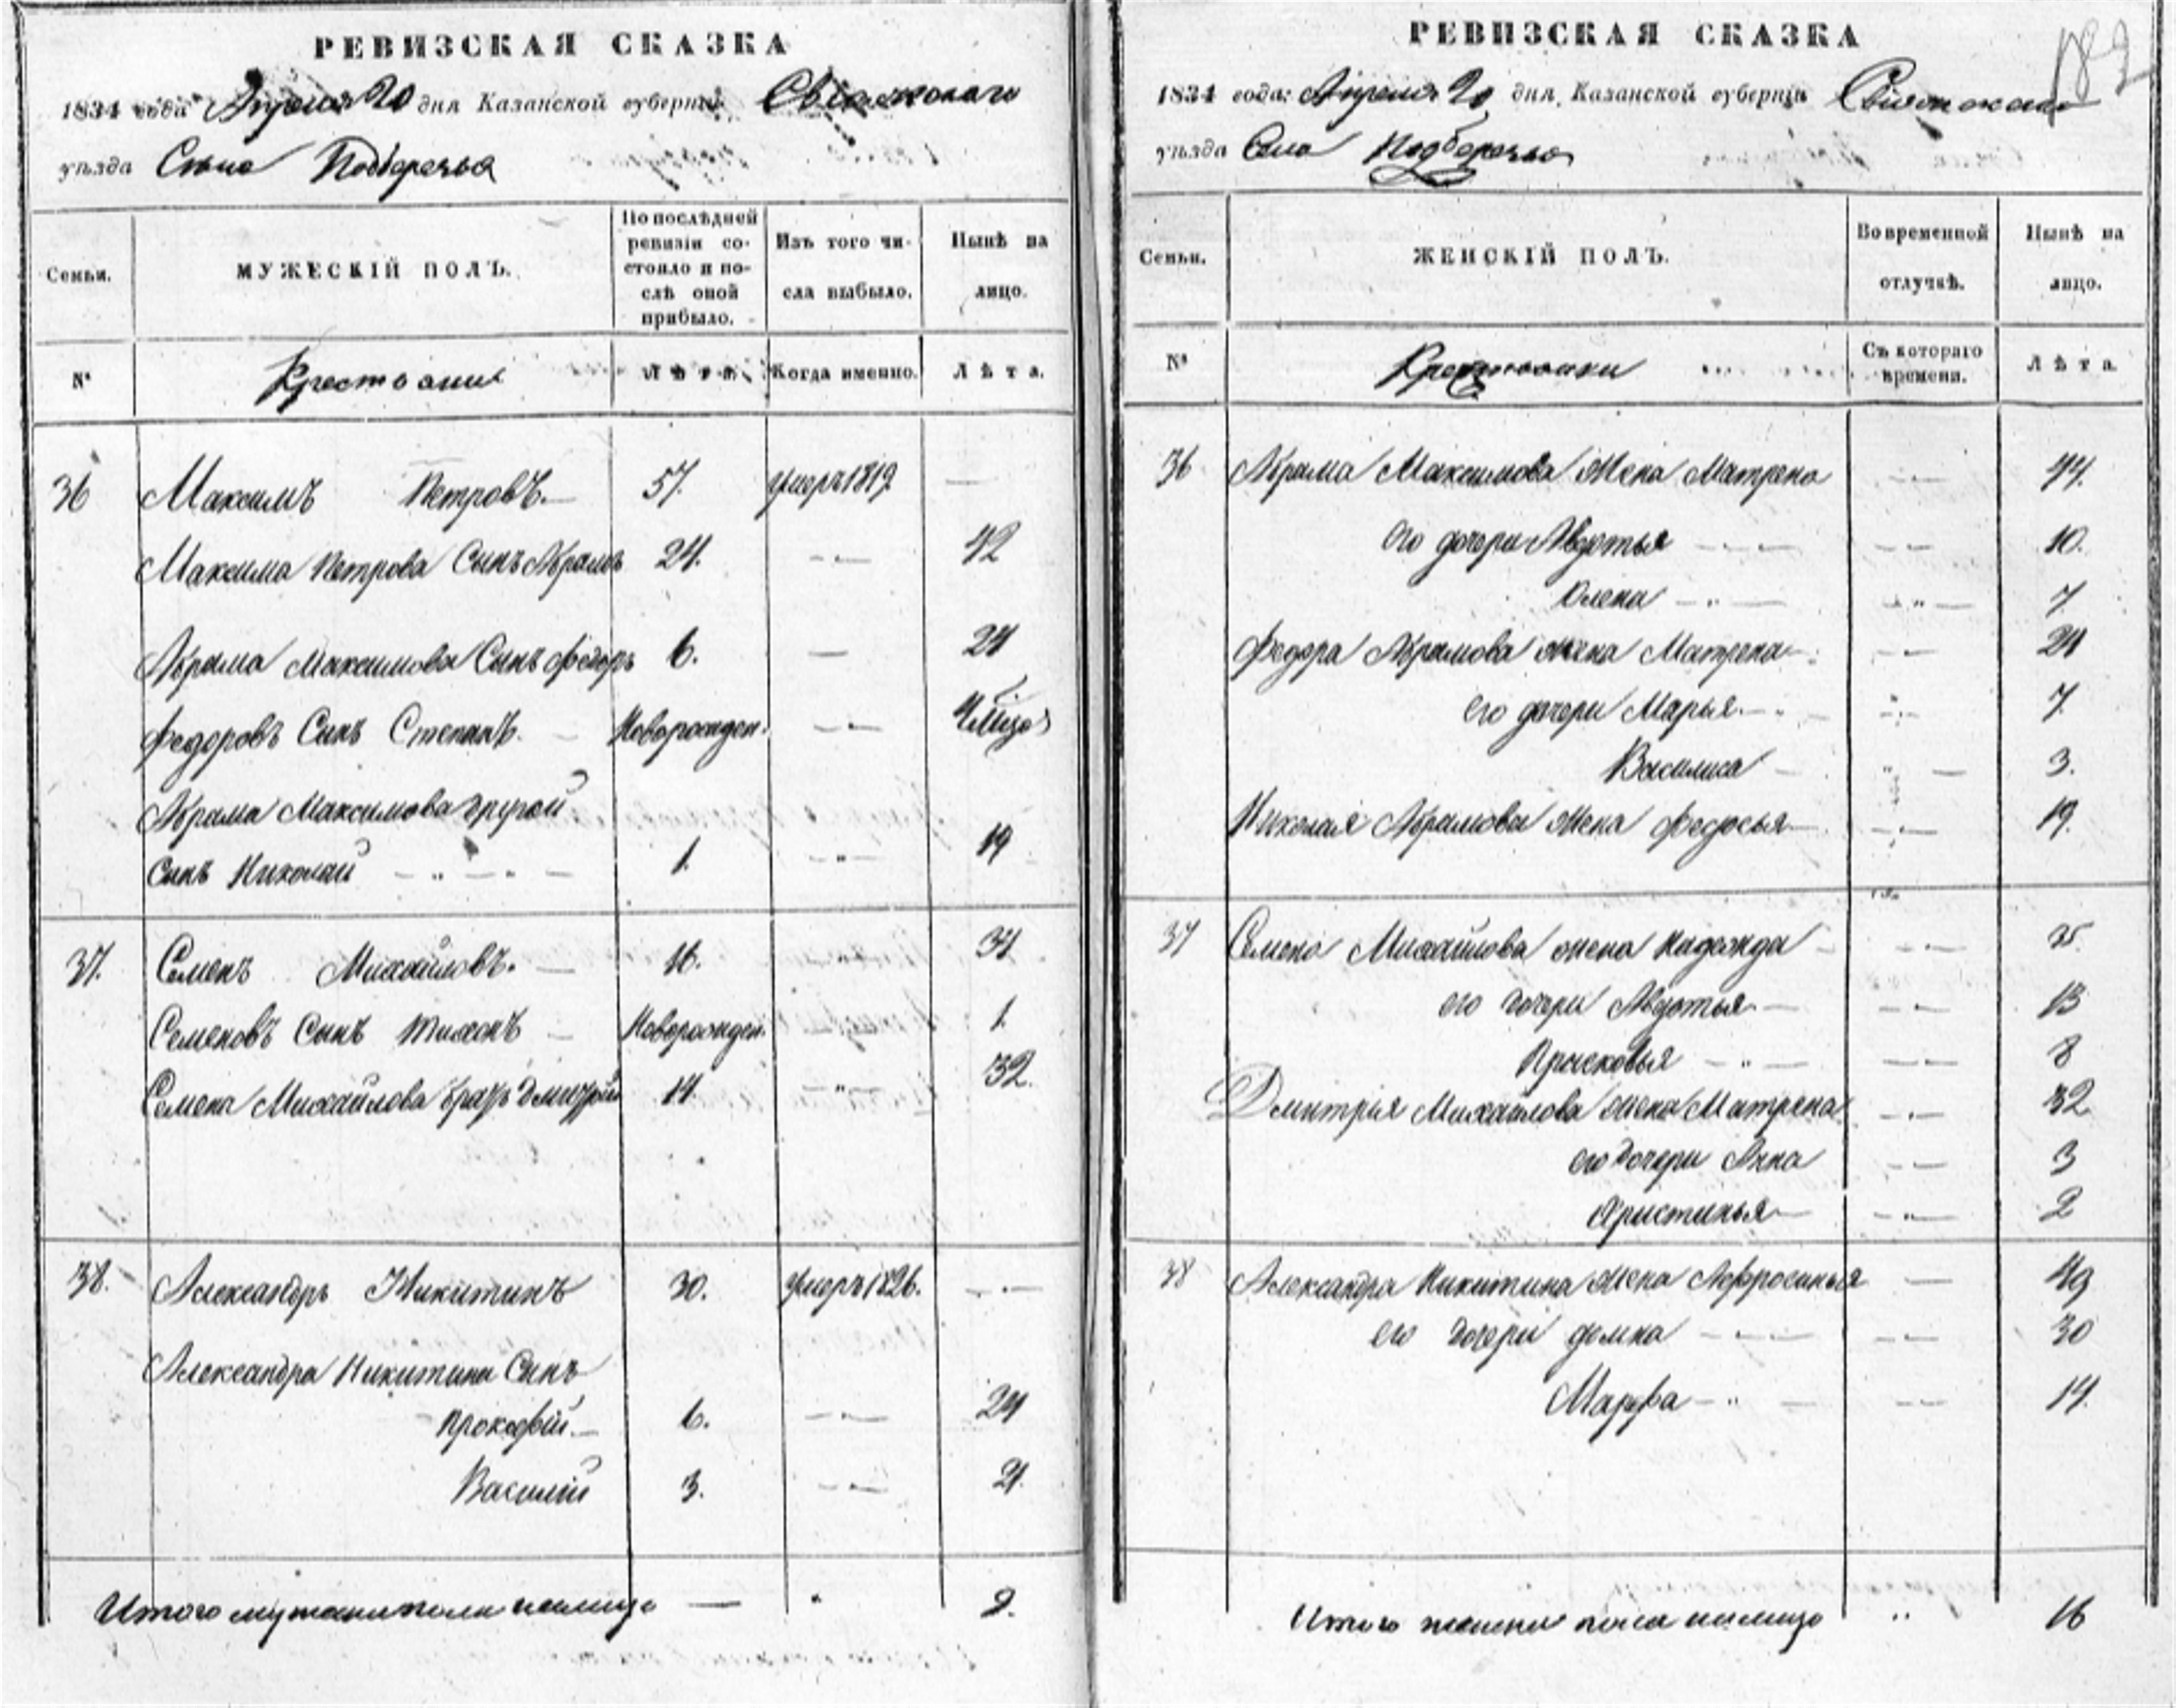 РЕВИЗСКАЯ СКАЗКА
1834 года Апреля 20 дня Казанской губерніи Свіяжскаго
уѣзда Села Подберезья
Семьи.
МУЖЕСКІЙ ПОЛЪ.
По послѣдней
ревизіи со-
стояло и по-
слѣ оной
прибыло.
Изъ того чи-
сла выбыло.
Нынѣ на
лицо.
№
Крестьяне
Лѣта.
Когда именно.
Лѣта.
36 Максимъ Петровъ. — 57. умеръ 1819 —
Максима Петрова Сынъ Абрамъ 24. — 42
Абрама Максимова Сынъ Федоръ 6. — 24
Федоровъ Сынъ Степанъ. Новорожден.
Абрама Максимова другой
Сынъ Николай 1. — 19
37. Семенъ Михайловъ. — 16. 34
Семеновъ Сынъ Тихонъ — Новорожден. 1.
Семена Михайлова братъ Дмитрий 14 32.
38. Александръ Никитинъ 30. умеръ 1826. —
Александра Никитина Сынъ
Прокофій — 6. — 24
Василій 3. — 21.
Итого мужеска пола налицо — 9.
РЕВИЗСКАЯ СКАЗКА
1834 года: Апреля 20 дня, Казанской губерніи Свіяжскаго
уѣзда Села Подберезья
187
Семьи.
ЖЕНСКІЙ ПОЛЪ.
Во временной
отлучкѣ.
Нынѣ на
лицо.
№
Крестьянки
Съ котораго
времени.
Лѣта.
36 Абрама Максимова Жена Матрена — 44.
его дочери Авдотья — 10.
Олена — 7
Федора Абрамова жена Матрена — 24
его дочери Марья — 7.
Василиса — 3.
Николая Абрамова Жена Федосья — 19.
37 Семена Михайлова жена Надежда — 35.
его дочери Авдотья — 13
Прасковья — 8
Дмитрія Михайлова жена Матрена — 32
его дочери Анна — 3
Христинья — 2
38 Александра Никитина Жена Афросинья — 49
его дочери Домна — 30
Марфа — 14.
Итого женска пола налицо „ 16